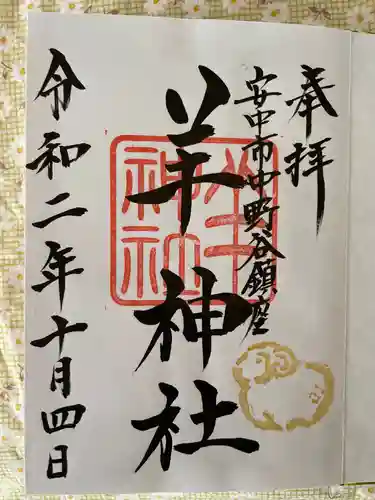 奉拝
安中市中野谷鎮座
羊神社
羊神社
令和二年十月四日